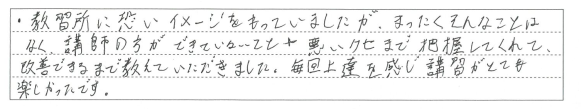 ・教習所に悪いイメージをもっていましたが、まったくそんなことは
なく、講師の方ができていないことや悪いクセまで把握してくれて、
改善できるまで教えていただきました。毎回上達を感じ講習がとても
楽しかったです。